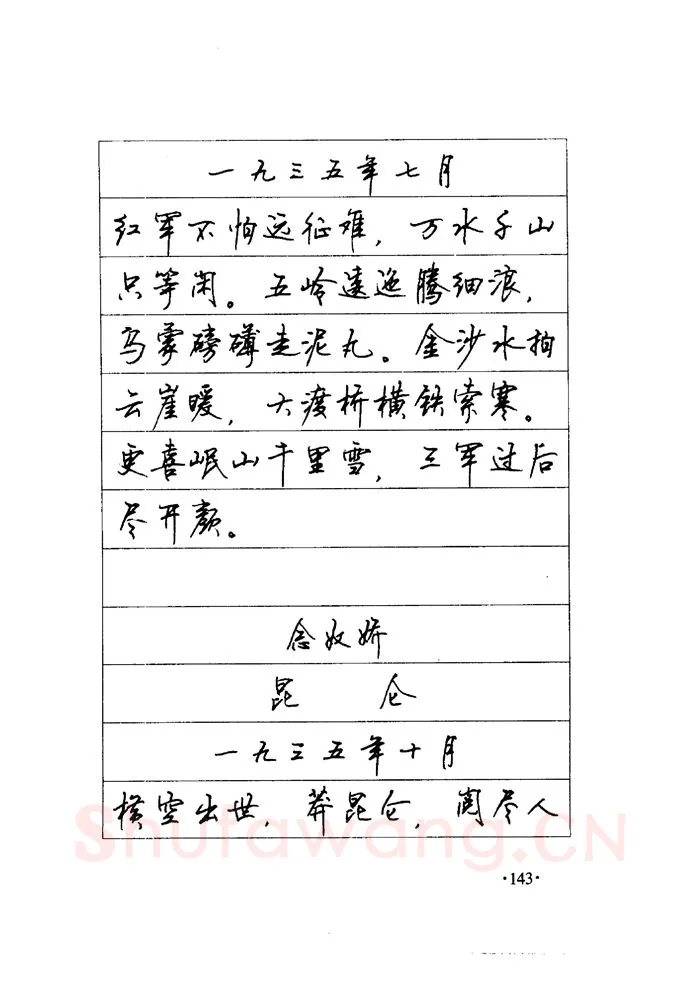 一九三五年七月
红军不怕远征难，万水千山
只等闲。五岭逶迤腾细浪，
乌蒙磅礴走泥丸。金沙水拍
云崖暖，大渡桥横铁索寒。
更喜岷山千里雪，三军过后
尽开颜。
念奴娇
昆 仑
一九三五年十月
横空出世，莽昆仑，阅尽人
Shufawang.CN
·143·